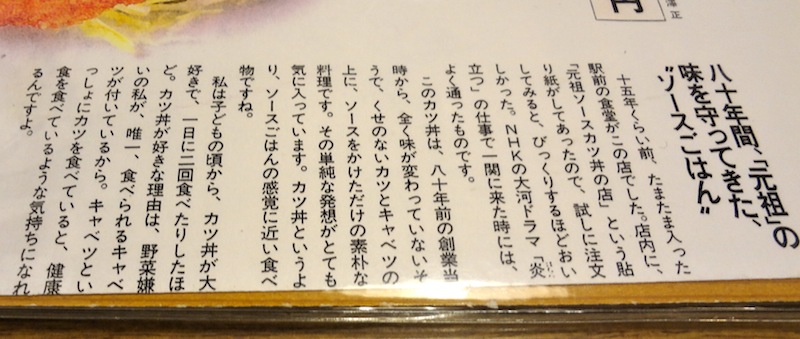 八十年間、「元祖」の
味を守ってきた、
“ソースごはん”
十五年くらい前、たまたま入った
駅前の食堂がこの店でした。店内に、
「元祖ソースカツ丼の店」という貼
り紙がしてあったので、試しに注文
してみると、びっくりするほどおい
しかった。NHKの大河ドラマ「炎
立つ」の仕事で一関に来た時には、
よく通ったものです。
このカツ丼は、八十年前の創業当
時から、全く味が変わっていないそ
うで、くせのないカツとキャベツの
上に、ソースをかけただけの素朴な
料理です。その単純な発想がとても
気に入っています。カツ丼というよ
り、ソースごはんの感覚に近い食べ
物ですね。
私は子どもの頃から、カツ丼が大
好きで、一日に二回食べたりしたほ
ど。カツ丼が好きな理由は、野菜嫌
いの私が、唯一、食べられるキャベ
ツが付いているから。キャベツとい
っしょにカツを食べていると、健康
食を食べているような気持ちになれ
るんですよ。
円
澤正